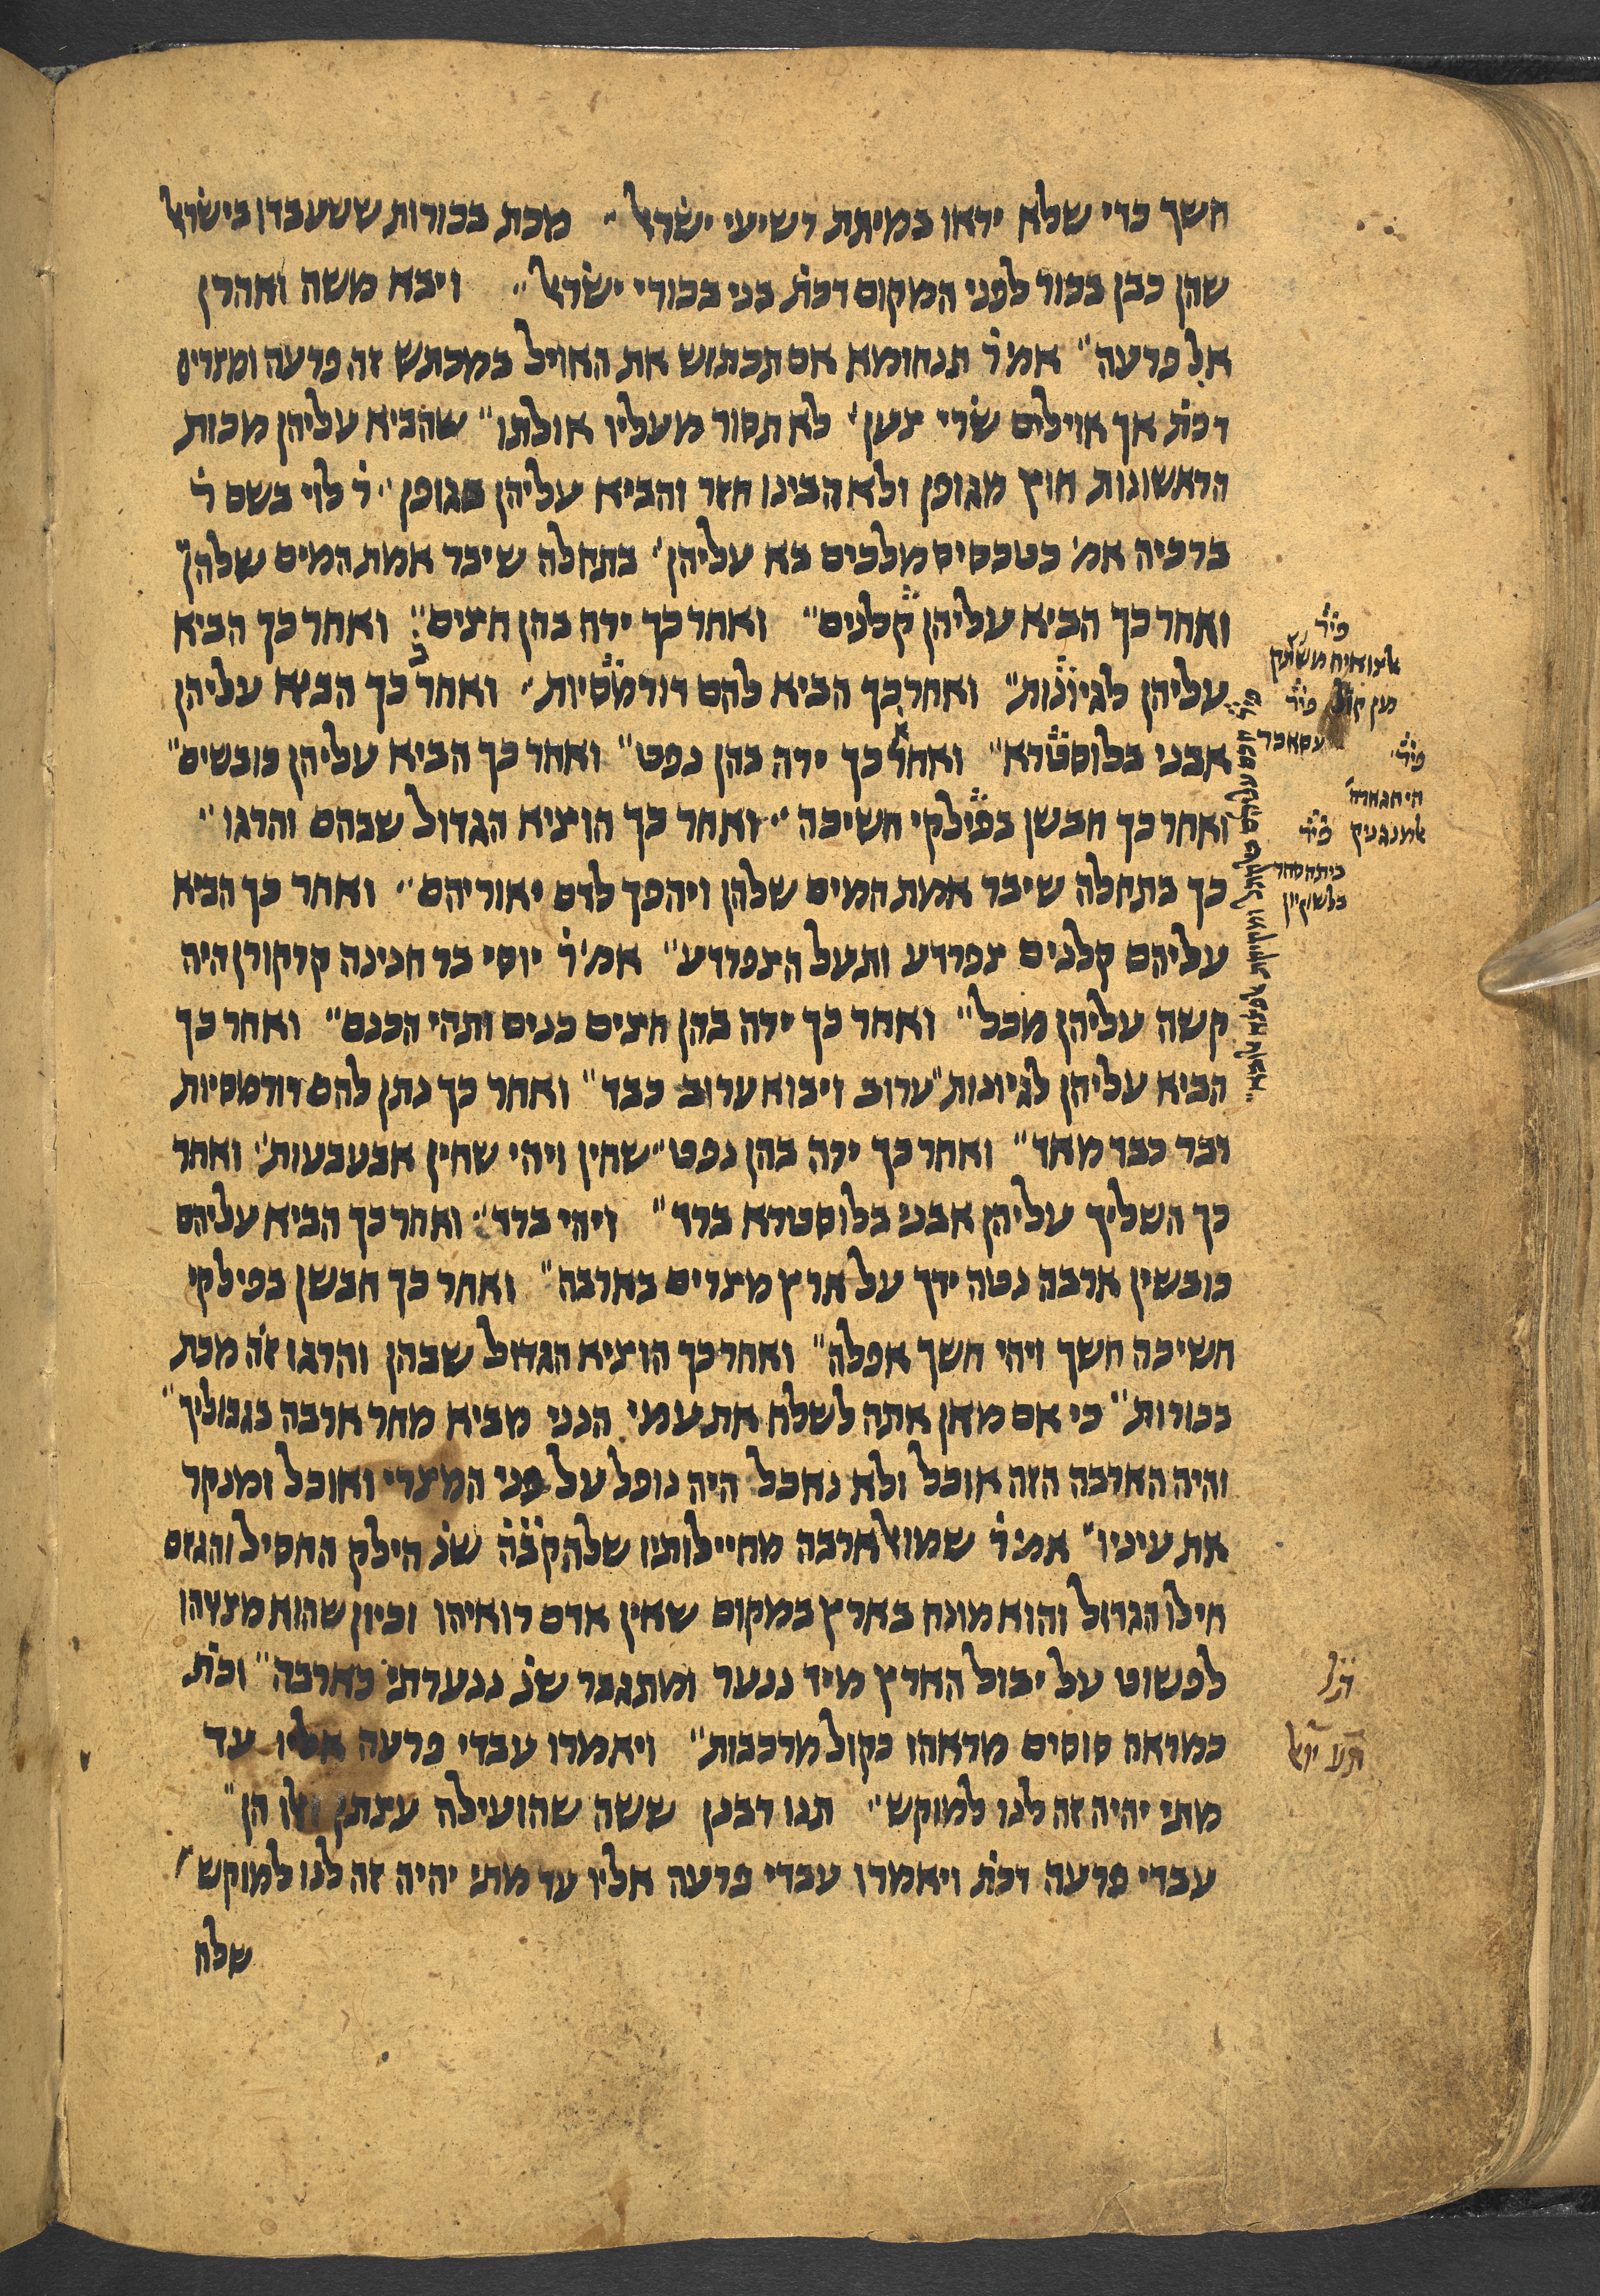 חשך כדי שלא יראו במיתת רשיעי ישראל״ מכת בכורות ששעבדו בישראל
שהן כבן בכור לפני המקום דכת̇ בני בכורי ישראל״ ויבא משה ואהרן
אל פרעה״ אמ׳ ר̇ תנחומא אם תכתוש את האויל במכתש זה פרעה ומצרים
דכת̇ אך אוילים שרי צען׳ לא תסור מעליו אולתו״ שהביא עליהן מכות
הראשונות חוץ מגופן ולא הבינו חזר והביא עליהן בגופן״ ר̇ לוי בשם ר̇
ברכיה אמ׳ בטכסיס מלכים בא עליהן׳ בתחלה שיבר אמת המים שלהן״
ואחר כך הביא עליהן קלנים״ ואחר כך ירה בהן חצים״ ואחר כך הביא
עליהן לגיונות״ ואחר כך הביא להם דורמסיות״ ואחר כך הביא עליהן
אבני בלוסטרא״ ואחר כך ירה בהן נפט״ ואחר כך הביא עליהן כובשים״
ואחר כך חבשן בפילקי חשיכה״ ואחר כך הוציא הגדול שבהם והרגו״
כך בתחלה שיבר אמת המים שלהן ויהפך לדם יאוריהם״ ואחר כך הביא
עליהם קלנים צפרדע ותעל הצפרדע״ אמ׳ ר̇ יוסי בר חנינה קרקורן היה
קשה עליהן מכל״ ואחר כך ירה בהן חצים כנים ותהי הכנם״ ואחר כך
הביא עליהן לגיונות״ ערוב ויבוא ערוב כבד״ ואחר כך נתן להם דורמסיות
דבר כבד מאד״ ואחר כך ירה בהן נפט״ שחין ויהי שחין אבעבעות״ ואחר
כך השליך עליהן אבני בלוסטרא ברד״ ויהי ברד״ ואחר כך הביא עליהם
כובשין ארבה נטה ידך על ארץ מצרים בארבה״ ואחר כך חבשן בפילקי
חשיכה חשך ויהי חשך אפלה״ ואחר כך הוציא הגדול שבהן והרגו זה מכת
בכורות״ כי אם מאן אתה לשלח את עמי הנני מביא מחר ארבה בגבוליך״
והיה הארבה הזה אוכל ולא נאכל היה נופל על פני המצרי ואוכל ומנקר
את עיניו״ אמ׳ ר̇ שמואל ארבה מחיילותיו שלהק̇ב̇ה̇ שנ̇ הילק החסיל והגזם
חילו הגדול והוא מונח בארץ במקום שאין אדם רואיהו וכיון שהוא מצוהו
לפשוט על יבול הארץ מיד ננער ומתגבר שנ̇ ננערתי כארבה״ וכת̇
כמראה סוסים מראהו כקול מרכבות״ ויאמרו עבדי פרעה אליו עד
מתי יהיה זה לנו למוקש״ תנו רבנן ששה שהועילה עצתן ואלו הן״
עבדי פרעה דכת̇ ויאמרו עבדי פרעה אליו עד מתי יהיה זה לנו למוקש״
שלח
פי̇ר̇
פי̇ר̇
עסאכר
פי̇ר̇
אלמנגניק פי̇ר̇